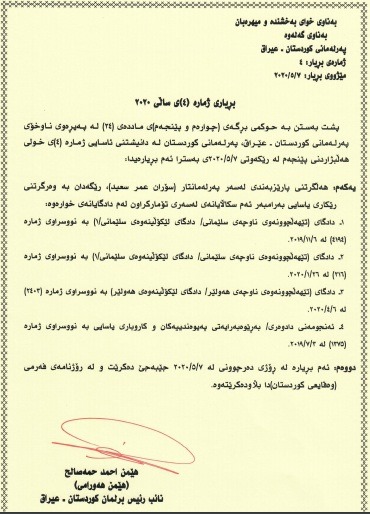 بەناوی خوای بەخشندە و میهرەبان
بەناوی گەلەوە
پەرلەمانی کوردستان ـ عیراق
ژمارەی بڕیار: ٤
مێژووی بڕیار: ٢٠٢٠/٥/٧
بڕیاری ژمارە (٤)ی ساڵی ٢٠٢٠
پشت بەستن بە حوکمی بڕگەی (چوارەم و پێنجەم)ی ماددەی (٢٤) لە پەیڕەوی ناوخۆی
پەرلەمانی کوردستان ـ عێراق، پەرلەمانی کوردستان لە دانیشتنی ئاسایی ژمارە (٤)ی خولی
هەڵبژاردنی پێنجەم لە ڕێکەوتی ٢٠٢٠/٥/٧ی بەسترا ئەم بڕیارەیدا:
یەکەم: هەڵگرتنی پارێزبەندی لەسەر پەرلەمانتار (سۆران عمر سعید)، ڕێگەدان بە وەرگرتنی
ڕێکاری یاسایی بەرامبەر ئەم سکاڵایانەی لەسەری تۆمارکراون لەم دادگایانەی خوارەوە:
١. دادگای (تێهەڵچوونەوەی ناوچەی سلێمانی/ دادگای لێکۆڵینەوەی سلێمانی/١) بە نووسراوی ژمارە
(٤١٩٤) لە ٢٠١٩/١١/٦.
٢. دادگای (تێهەڵچوونەوەی ناوچەی سلێمانی/ دادگای لێکۆڵینەوەی سلێمانی/١) بە نووسراوی ژمارە
(٣١٦) لە ٢٠٢٠/١/٢٦.
٣. دادگای (تێهەڵچوونەوەی ناوچەی هەولێر/ دادگای لێکۆڵینەوەی هەولێر) بە نووسراوی ژمارە (٢٤٠٣)
لە ٢٠٢٠/٤/٦.
٤. ئەنجومەنی دادوەری/ بەڕێوەبەرایەتی پەیوەندییەکان و کاروباری یاسایی بە نووسراوی ژمارە
(١٣٧٥) لە ٢٠١٩/٧/٢.
دووەم: ئەم بڕیارە لە ڕۆژی دەرچوونی لە ٢٠٢٠/٥/٧ جێبەجێ دەکرێت و لە ڕۆژنامەی فەرمی
(وەقایعی کوردستان)دا بڵاودەکرێتەوە.
هێمن احمد حمەصالح
(هێمن هەورامی)
نائب رئیس برلمان کوردستان ـ عیراق